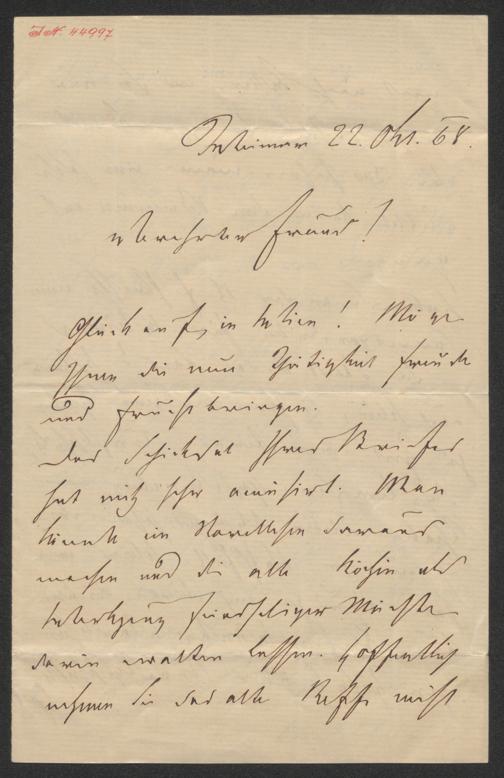 I.N. 44997
Weimar 22. Okt. 68.
Verehrter Freund!
Glück auf, in Wien! Möge
Ihnen die neue Thätigkeit Freude
und Frucht bringen.
Das Schicksal Ihres Briefes
hat mich sehr amüsirt. Man
könnte ein Novellchen daraus
machen und die alte Köchin als
Werkzeug feindseliger Mächte
darin walten lassen. Hoffentlich
nehmen Sie das alte nicht